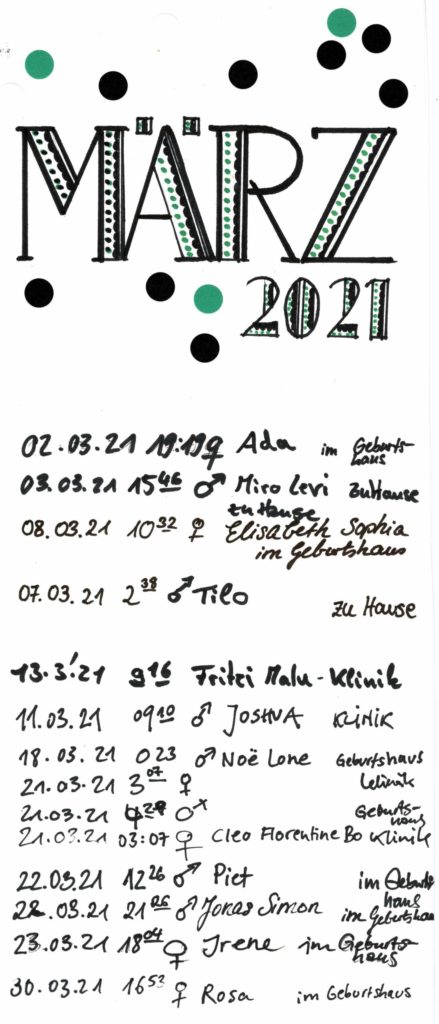 MÄRZ
2021
02.03.21 19:19 ♀ Ada im Geburts-
haus
03.03.21 15 46 ♂ Miro Levi zuHause
zu Hause
08.03.21 10 32 ♀ Elisabeth Sophia
im Geburtshaus
07.03.21 2 38 ♂ Tilo
zu Hause
13.3.'21 9 16 Fritzi Malu - Klinik
11.03.21 09 10 ♂ JOSHUA KLINIK
18.03.21 0 23 ♂ Noë Lone Geburtshaus
21.03.21 3 07 ♀ Klinik
21.03.21 ♂ Geburts-
haus
21.03.21 03:07 ♀ Cleo Florentine Bo Klinik
22.03.21 12 26 ♂ Piet im Geburts
haus
22.03.21 21 06 ♂ Jonas Simon im Geburtshaus
23.03.21 18 04 ♀ Irene im Geburts-
haus
30.03.21 16 53 ♀ Rosa im Geburtshaus